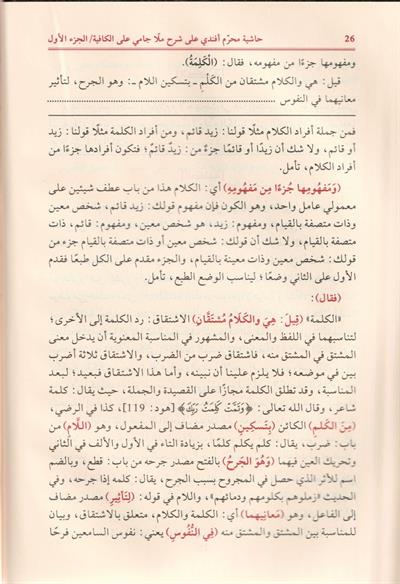 26 حاشية محرّم أفندي على شرح ملّا جامي على الكافية/الجزء الأول
ومفهومها جزءًا من مفهومه، فقال: (الْكَلِمَةُ).
قيل: هي والكلام مشتقان من الكَلْمِ ـ بتسكين اللام ـ: وهو الجرح، لتأثير
معانيهما في النفوس
فمن جملة أفراد الكلام مثلًا قولنا: زيد قائم، ومن أفراد الكلمة مثلًا قولنا: زيد
أو قائم، ولا شك أن زيدًا أو قائمًا جزءٌ من: زيدٌ قائمٌ؛ فتكون أفرادها جزءًا من
أفراد الكلام، تأمل.
(وَمَفْهُومِها جُزءًا مِن مَفْهُومِهِ) أي: الكلام هذا من باب عطف شيئين على
معمولي عامل واحد، وهو الكون فإن مفهوم قولك: زيد قائم، شخص معين
وذات متصفة بالقيام، ومفهوم: زيد، هو شخص معين، ومفهوم: قائم، ذات
متصفة بالقيام، ولا شك أن قولك: شخص معين أو ذات متصفة بالقيام جزء من
قولك: شخص معين وذات معينة بالقيام، والجزء مقدم على الكل طبعًا فقدم
الأول على الثاني وضعًا؛ ليناسب الوضع الطبع، تأمل.
(فقال):
«الكلمة» (قِيلَ: هِيَ وَالكَلَامُ مُشْتَقَّانِ) الاشتقاق: رد الكلمة إلى الأخرى؛
لتناسبهما في اللفظ والمعنى، والمشهور في المناسبة المعنوية أن يدخل معنى
المشتق في المشتق منه، فاشتقاق ضرب من الضرب، والاشتقاق ثلاثة أضرب
بين في موضعه؛ فلا يلزم علينا أن نبينه، وأما هذا الاشتقاق فبعيد؛ لبعد
المناسبة، وقد تطلق الكلمة مجازًا على القصيدة والجملة، حيث يقال: كلمة
شاعر، وقال الله تعالى: ﴿وَتَمَّتْ كَلِمَتُ رَبِّكَ﴾ [هود: 119]، كذا في الرضي،
(مِنَ الكَلم) الكائن (بِتَسكينِ) مصدر مضاف إلى المفعول، وهو (اللَّام) من
باب: ضرب، يقال: كلم يكلم كلمًا، بزيادة التاء في الأول والألف في الثاني
وتحريك العين فيهما (وَهُوَ الجَرحُ) بالفتح مصدر جرحه من باب: قطع، وبالضم
اسم للأثر الذي حصل في المجروح بسبب الجرح، يقال: كلمه إذا جرحه، وفي
الحديث «زملوهم بكلومهم ودمائهم»، واللام في قوله: (لِتَأثِيرِ) مصدر مضاف
إلى الفاعل، وهو (مَعانِيهما) أي: الكلمة والكلام، متعلق بالاشتقاق، وبيان
للمناسبة بين المشتق والمشتق منه (فِي النُّفُوسِ) يعني: نفوس السامعين فرحًا